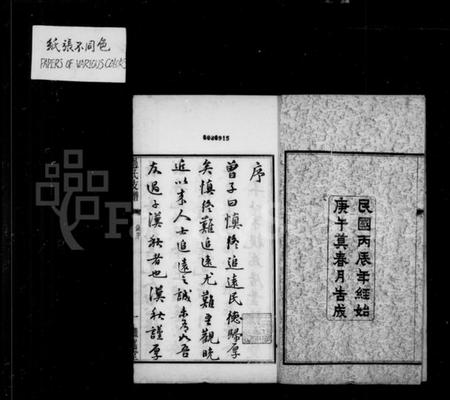 紙張不同色
PAPERS OF VARIOUS COLORS
6020915
民國丙辰年經始
庚午莫春月告成
序
曾子曰慎終追遠民德歸厚
矣慎終難追遠尤難里觀晩
近以來人士追遠之誠未有如吾
友過子漢秋者也漢秋謹厚